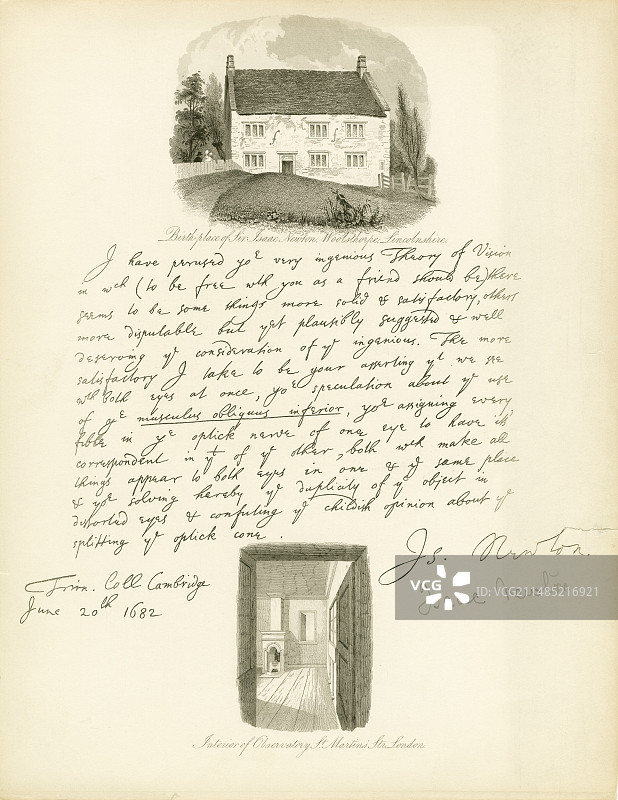 Birth-place of Sir Isaac Newton, Woolsthorpe, Lincolnshire
I have perused yor very ingenious Theory of Vision
in wch (to be free wth you as a friend should be) there
seems to be some things more solid & satisfactory, others
more disputable but yet plausibly suggested & well
deserving ye consideration of ye ingenious. The more
satisfactory I take to be your asserting yt we see
wth both eyes at once, yor speculation about ye use
of ye musculus obliquus inferior, yor assigning every
fibre in ye optick nerve of one eye to have its
correspondent in yt of ye other, both wch make all
things appear to both eyes in one & ye same place
& yor solving hereby ye duplicity of ye object in
distorted eyes & confuting ye childish opinion about ye
splitting ye optick cone.
Is. Newton.
Trin. Coll Cambridge
June 20th 1682
VCG
ID:VCG21485216921
Interior of Observatory, St. Martin's Str. London